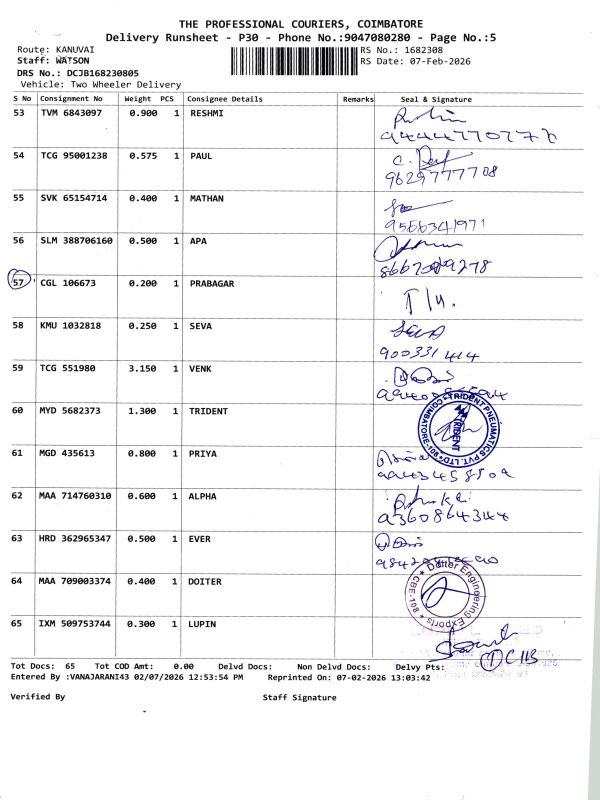 THE PROFESSIONAL COURIERS, COIMBATORE
Delivery Runsheet - P30 - Phone No.:9047080280 - Page No.:5
Route: KANUVAI RS No.: 1682308
Staff: WATSON RS Date: 07-Feb-2026
DRS No.: DCJB168230805
Vehicle: Two Wheeler Delivery
S No Consignment No Weight PCS Consignee Details Remarks Seal & Signature
53 TVM 6843097 0.900 1 RESHMI
54 TCG 95001238 0.575 1 PAUL
9629777708
55 SVK 65154714 0.400 1 MATHAN
9566341971
56 SLM 388706160 0.500 1 APA
57 CGL 106673 0.200 1 PRABAGAR
58 KMU 1032818 0.250 1 SEVA
900331414
59 TCG 551980 3.150 1 VENK
60 MYD 5682373 1.300 1 TRIDENT
TRIDENT PNEUMATICS PVT. LTD. COIMBATORE-108
TRIDENT
61 MGD 435613 0.800 1 PRIYA
62 MAA 714760310 0.600 1 ALPHA
63 HRD 362965347 0.500 1 EVER
64 MAA 709003374 0.400 1 DOITER
Doiter Engineering Exports CBE-108
65 IXM 509753744 0.300 1 LUPIN
Tot Docs: 65 Tot COD Amt: 0.00 Delvd Docs: Non Delvd Docs: Delvy Pts:
Entered By :VANAJARANI43 02/07/2026 12:53:54 PM Reprinted On: 07-02-2026 13:03:42
Verified By Staff Signature